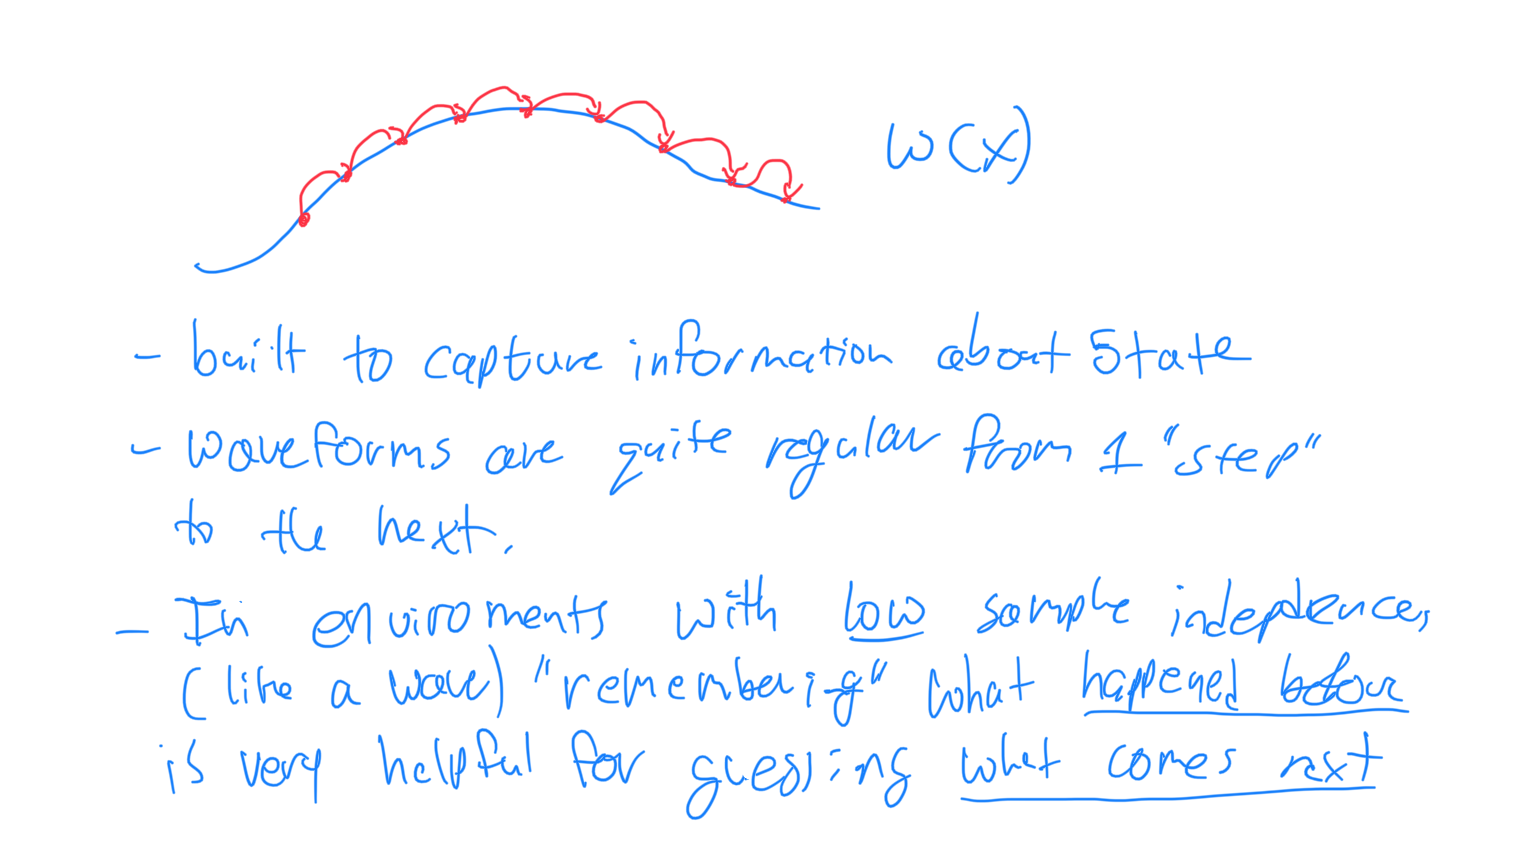 w(x)
- built to capture information about State
- waveforms are quite regular from 1 "step"
to the next.
- In enviroments with low sample indepdence,
(like a wave) "remembering" what happened before
is very helpful for guessing what comes next